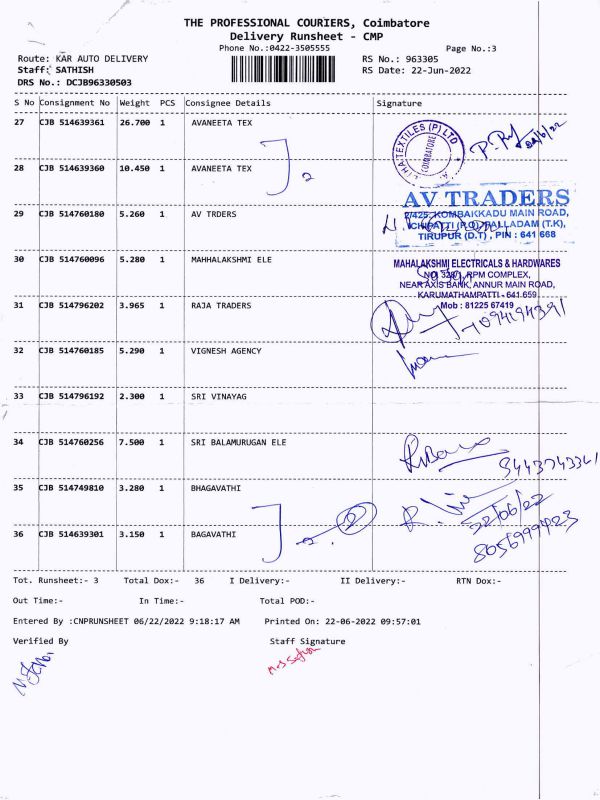 THE PROFESSIONAL COURIERS, Coimbatore
Delivery Runsheet - CMP
Phone No.:0422-3505555
Page No.:3
Route: KAR AUTO DELIVERY
RS No.: 963305
Staff: SATHISH
RS Date: 22-Jun-2022
DRS No.: DCJB96330503
S No Consignment No Weight PCS Consignee Details Signature
27 CJB 514639361 26.700 1 AVANEETA TEX
28 CJB 514639360 10.450 1 AVANEETA TEX
2
COIMBATORE
AV TRADERS
29 CJB 514760180 5.260 1 AV TRDERS
2/425, KOMBAKKADU MAIN ROAD,
PALLADAM (T.K),
TIRUPUR (D.T), PIN : 641 668
30 CJB 514760096 5.280 1 MAHHALAKSHMI ELE
MAHALAKSHMI ELECTRICALS & HARDWARES
RPM COMPLEX,
NEAR AXIS BANK, ANNUR MAIN ROAD,
KARUMATHAMPATTI - 641 659
Mob : 81225 67419
31 CJB 514796202 3.965 1 RAJA TRADERS
32 CJB 514760185 5.290 1 VIGNESH AGENCY
33 CJB 514796192 2.300 1 SRI VINAYAG
34 CJB 514760256 7.500 1 SRI BALAMURUGAN ELE
35 CJB 514749810 3.280 1 BHAGAVATHI
22/06/22
36 CJB 514639301 3.150 1 BAGAVATHI
Tot. Runsheet:- 3 Total Dox:- 36 I Delivery:- II Delivery:- RTN Dox:-
Out Time:- In Time:- Total POD:-
Entered By :CNPRUNSHEET 06/22/2022 9:18:17 AM Printed On: 22-06-2022 09:57:01
Verified By Staff Signature